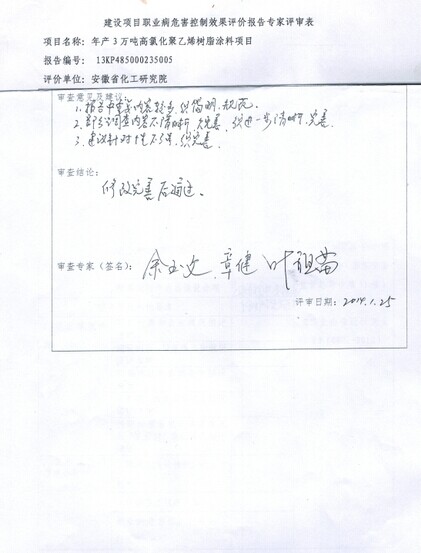 建设项目职业病危害控制效果评价报告专家评审表
项目名称：年产3万吨高氯化聚乙烯树脂涂料项目
报告编号： 13KP485000235005
评价单位：安徽省化工研究院
审查意见及建议：
1. 报告中重复内容较多，供简明、规范。
2. 部分调查内容不清晰、欠完善，供进一步清晰、完善。
3. 建议针对性不强，供完善。
审查结论：
修改完善后通过。
审查专家（签名）： 章健
评审日期：2014.1.25